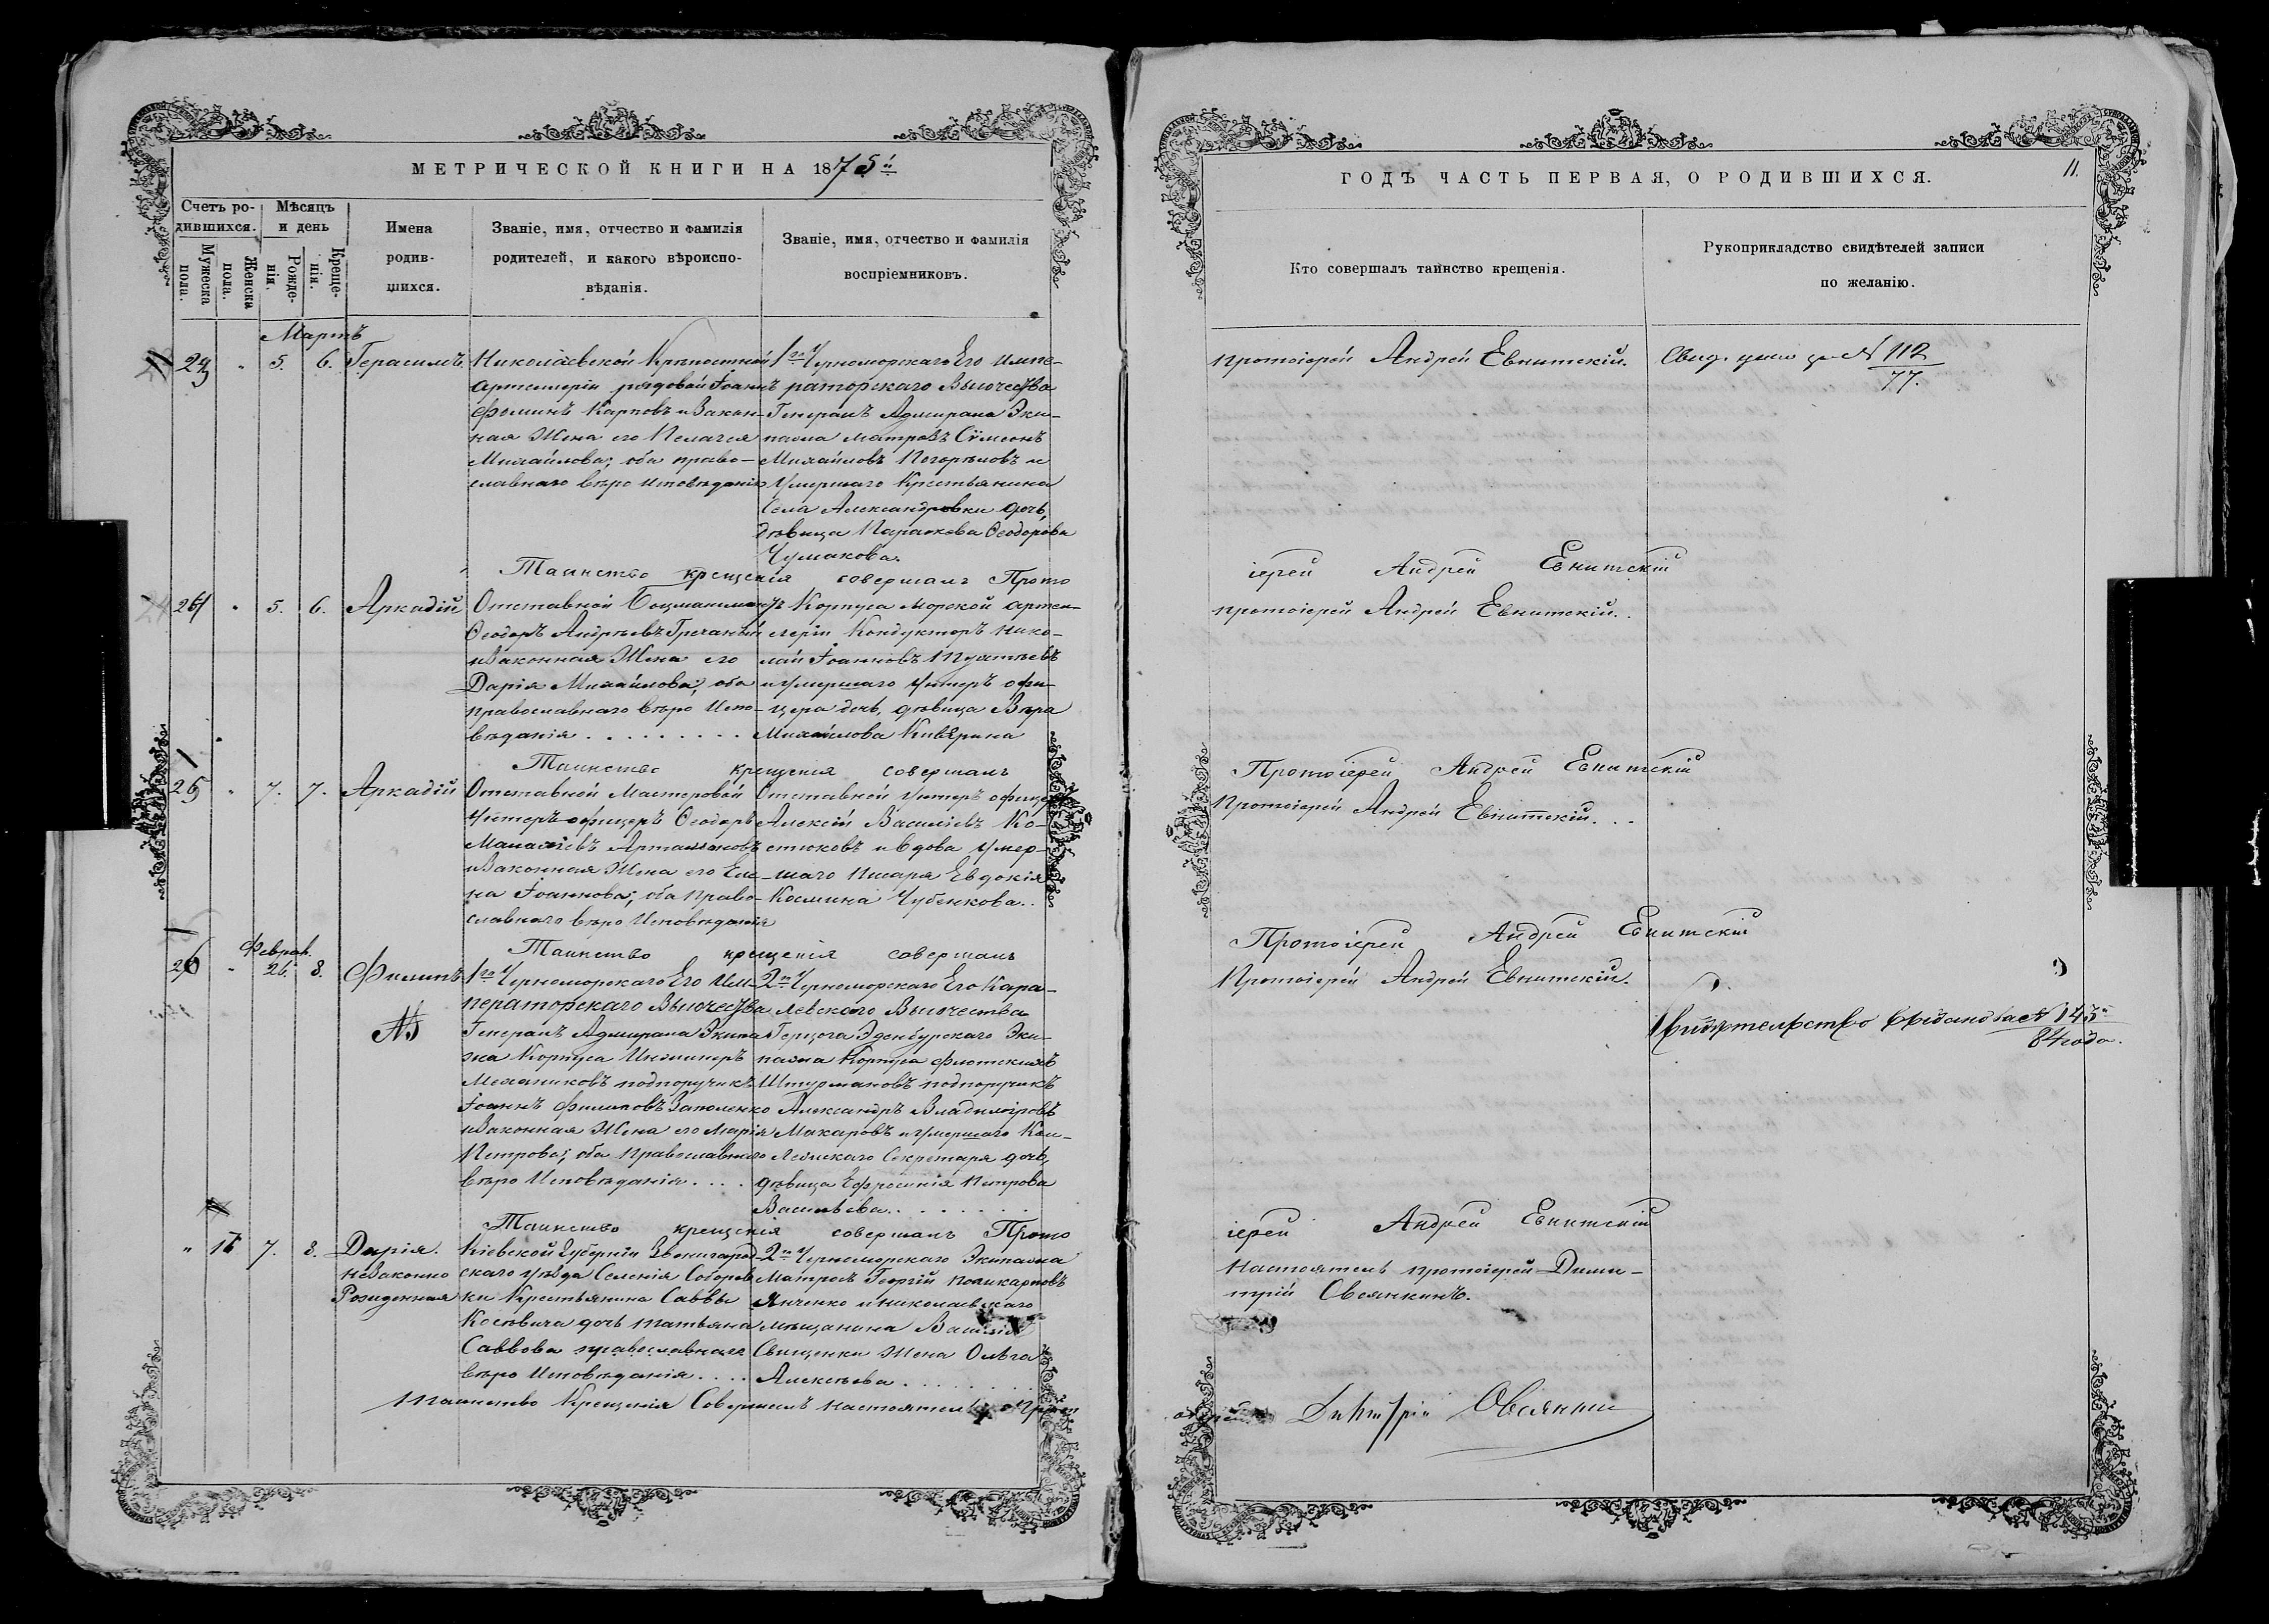 МЕТРИЧЕСКОЙ КНИГИ НА 1875й
Счетъ ро-
дившихся.
Мужеска пола.
Женска пола.
Мѣсяцъ
и день
Рожде-
нія.
Креще-
нія.
Имена
родив-
шихся.
Званіе, имя, отчество и фамилія
родителей, и какого вѣроиспо-
вѣданія.
Званіе, имя, отчество и фамилія
воспріемниковъ.
Мартъ
5. 6. Герасимъ
Николаевской Крѣпостной
Артиллеріи рядовой Іоаннъ
Фоминъ Карповъ и Закон-
ная Жена его Пелагея
Михайлова; оба право-
славнаго вѣро исповѣданія
1го Черноморскаго Его Импе-
раторскаго Высочества
Генералъ Адмирала Эки-
пажа матрозъ Сѵмеонъ
Михайловъ Погорѣловъ и
Умершаго Крестьянина
Села Александровки дочь,
дѣвица Параскева Ѳеодорова
Чумакова.
Таинство крещенія совершалъ Прото
24 " 5. 6. Аркадій
Отставной Боцманматъ
Ѳеодоръ Андреевъ Гречаный
и Законная Жена его
Дарія Михайлова; оба
православнаго вѣро Испо-
вѣданія . . . . . . . . .
Корпуса Морской артил-
леріи Кондукторъ Нико-
лай Іоанновъ
и умершаго Унтеръ офи-
цера дочь, дѣвица Вѣра
Михайлова Киверина
Таинство крещенія совершалъ
25 " 7. 7. Аркадій
Отставной Мастеровой
Унтеръ-офицеръ Ѳеодоръ
и Законная Жена его Еле-
на Іоаннова; оба Право-
славнаго вѣро Исповѣданія
Отставной Унтеръ офицеръ
Алексій Василіевъ Ко-
стюковъ и вдова Умер-
шаго Писаря Евдокія
Космина Чубенкова..
Таинство крещенія совершалъ
Феврал.
26 " 26. 8. Филипъ
1го Черноморскаго Его Им-
ператорскаго Высочества
Генералъ Адмирала Экипа-
жа Корпуса Инженеръ
Механиковъ подпоручикъ
Іоаннъ Филиповъ Заполенко
и Законная Жена его Марія
Петрова; оба Православнаго
вѣро Исповѣданія . . . .
2го Черноморскаго Его Кора-
левскаго Высочества
Герцога Эдинбурскаго Эки-
пажа Корпуса флотскихъ
Штурмановъ подпоручикъ
Александръ Владиміровъ
Макаровъ и умершаго Кол-
лежскаго Секретаря дочь,
дѣвица Ефросинія Петрова
Васильева. . . . . . . .
Таинство крещенія совершалъ Прото
" 7. 8. Дарія.
незаконно
Рожденная
Кіевской Губерніи Звенигород-
скаго уѣзда Селенія Соборов-
ки Крестьянина Саввы
Косовича дочь Татьяна
Саввова православнаго
вѣро Исповѣданія . . . .
2го Черноморскаго Экипажа
Матросъ Георгій Поликарповъ
Янченко и Николаевскаго
мѣщанина Василія
Свищенки Жена Ольга
Алексѣева . . . . . . . .
Таинство Крещенія Совершалъ Настоятель
ГОДЪ ЧАСТЬ ПЕРВАЯ, О РОДИВШИХСЯ.
11.
Кто совершалъ таинство крещенія.
Рукоприкладство свидѣтелей записи
по желанію.
протоіерей Андрей Евнитскій.
№ 112
77.
іерей Андрей Евнитскій
протоіерей Андрей Евнитскій..
Протоіерей Андрей Евнитскій
Протоіерей Андрей Евнитскій. . .
Протоіерей Андрей Евнитскій
Протоіерей Андрей Евнитскій.
Свидѣтельство
84 года.
іерей Андрей Евнитскій
Настоятель протоіерей Дими-
трій Овсянкинъ.
Димитрій Овсянкин